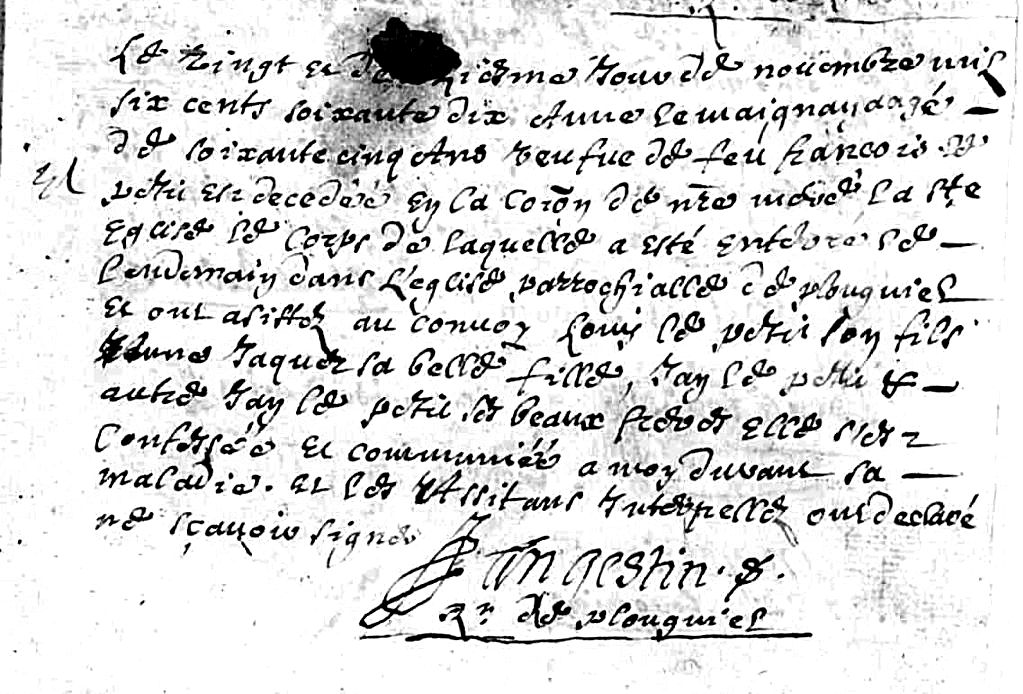 Le vingt et de iesme Jour de nouembre mil
six cents soixante dix Anne Lemaignan aagé
de soixante cinq Ans veufue de feu françois le
petit est decedéé en la Coion de nre mere La Ste
Eglise le Corps de laquelle a esté Enterre le
Lendemain dans L'eglise parrochialle de plouguiel
Et ont asisté au Convoy Louis le petit son fils
Anne Jaques sa belle fille, Jan le petit &
autre Jan le petit ses beaux freres Elle s'est
Confesséé Et communiéé a moy durant sa
maladie. Et les Assitans Interpellé ont declaré
ne sçauoir signer
gestin. &.
Rr. de plouguiel